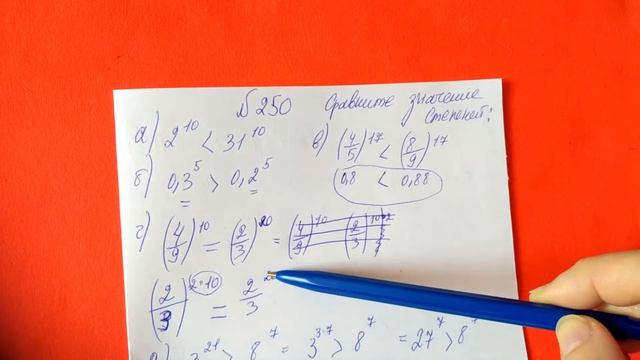 №250 Сравните значение степеней:
а) 2^10 < 31^10
в) (4/5)^17 < (8/9)^17
б) 0,3^5 > 0,2^5
0,8 < 0,88
г) (4/9)^10 = (2/3)^20 = (4/9)^10 (2/3)^10
(2/3)^2·10 = 2/3
3^21 > 8^7 = 3^3·7 > 8^7 = 27^7 > 8^7